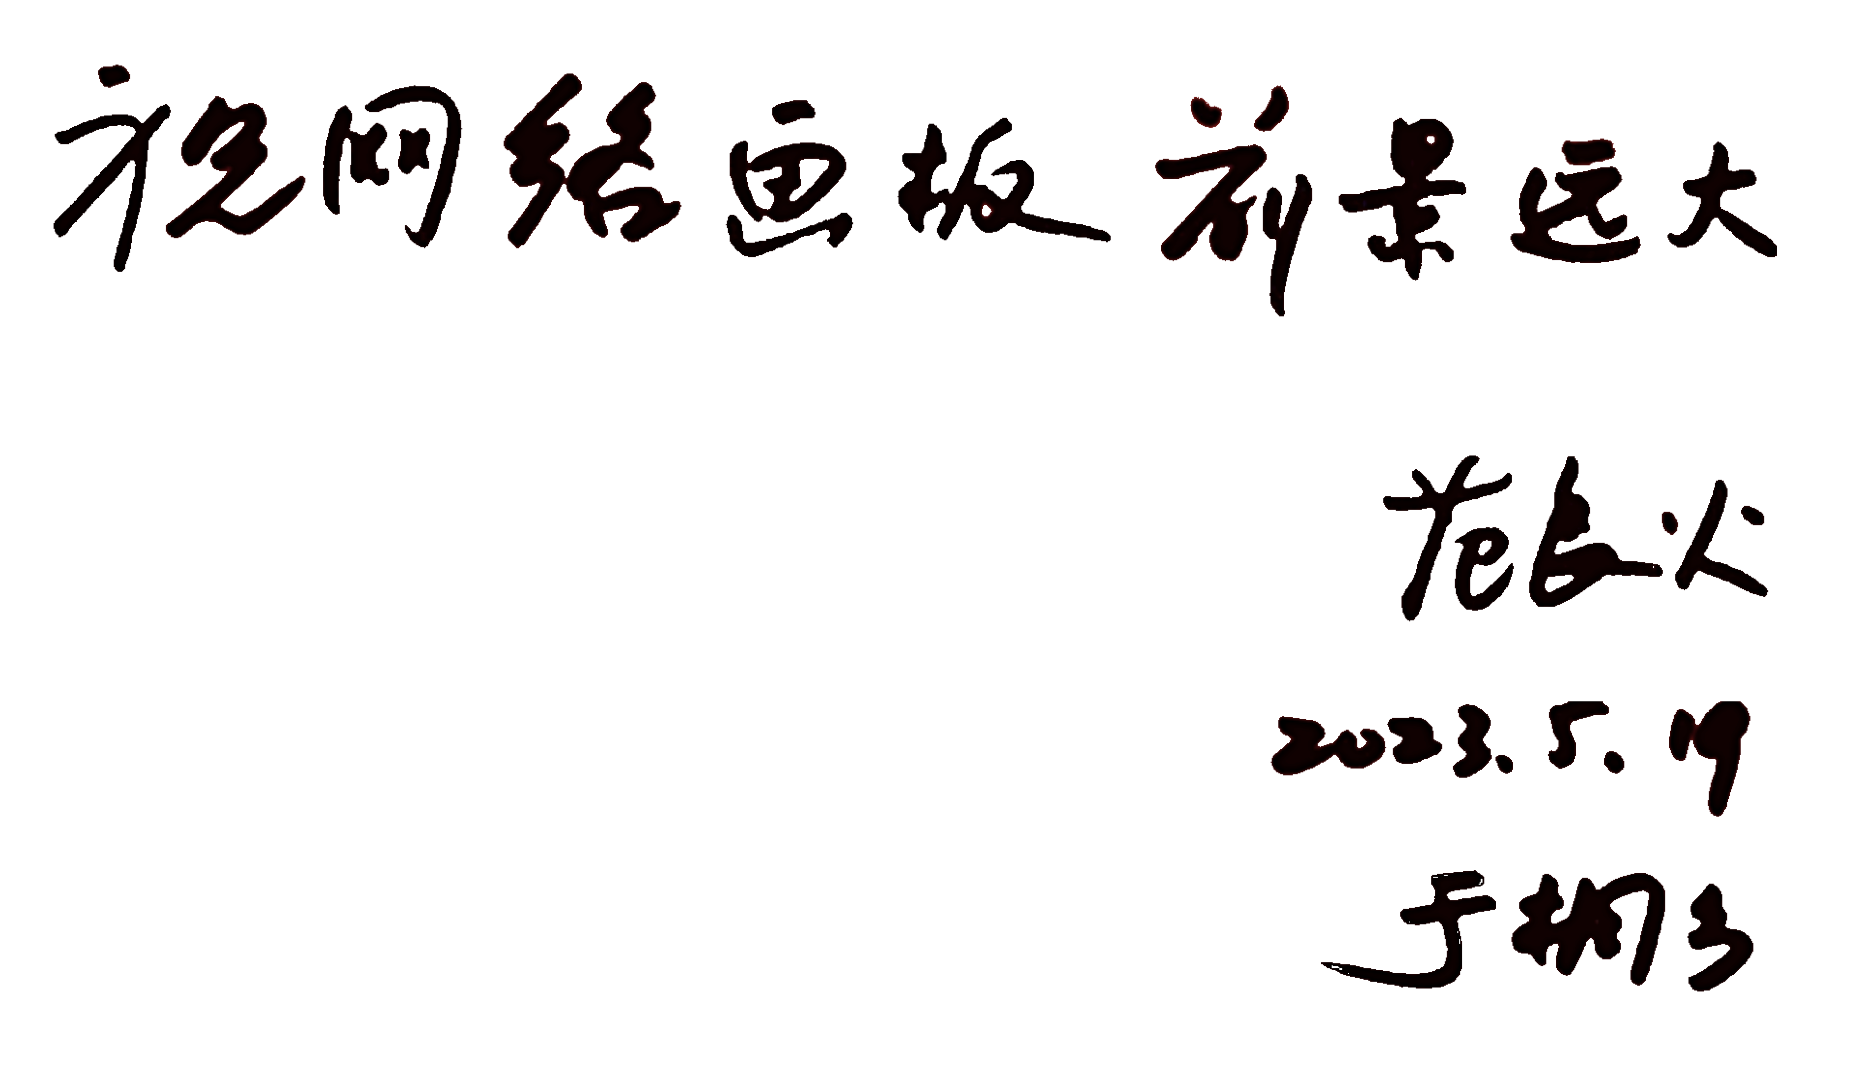 祝网络画板 前景远大
范良火
2023.5.19
于桐乡